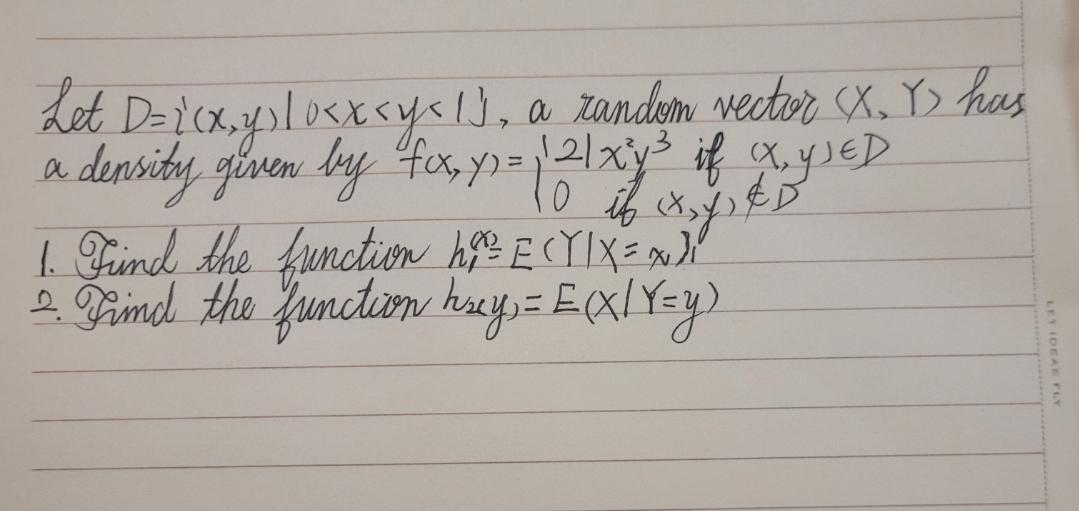 Let D={(x,y)|0<x<y<1}, a random vector (X,Y) has
a density given by f(x,y)={21x²y³ if (x,y)∈D
0 if (x,y)∉D
1. Find the function h₁(x)=E(Y|X=x),
2. Find the function h₂(y)=E(X|Y=y)
LET IDEAS FLY